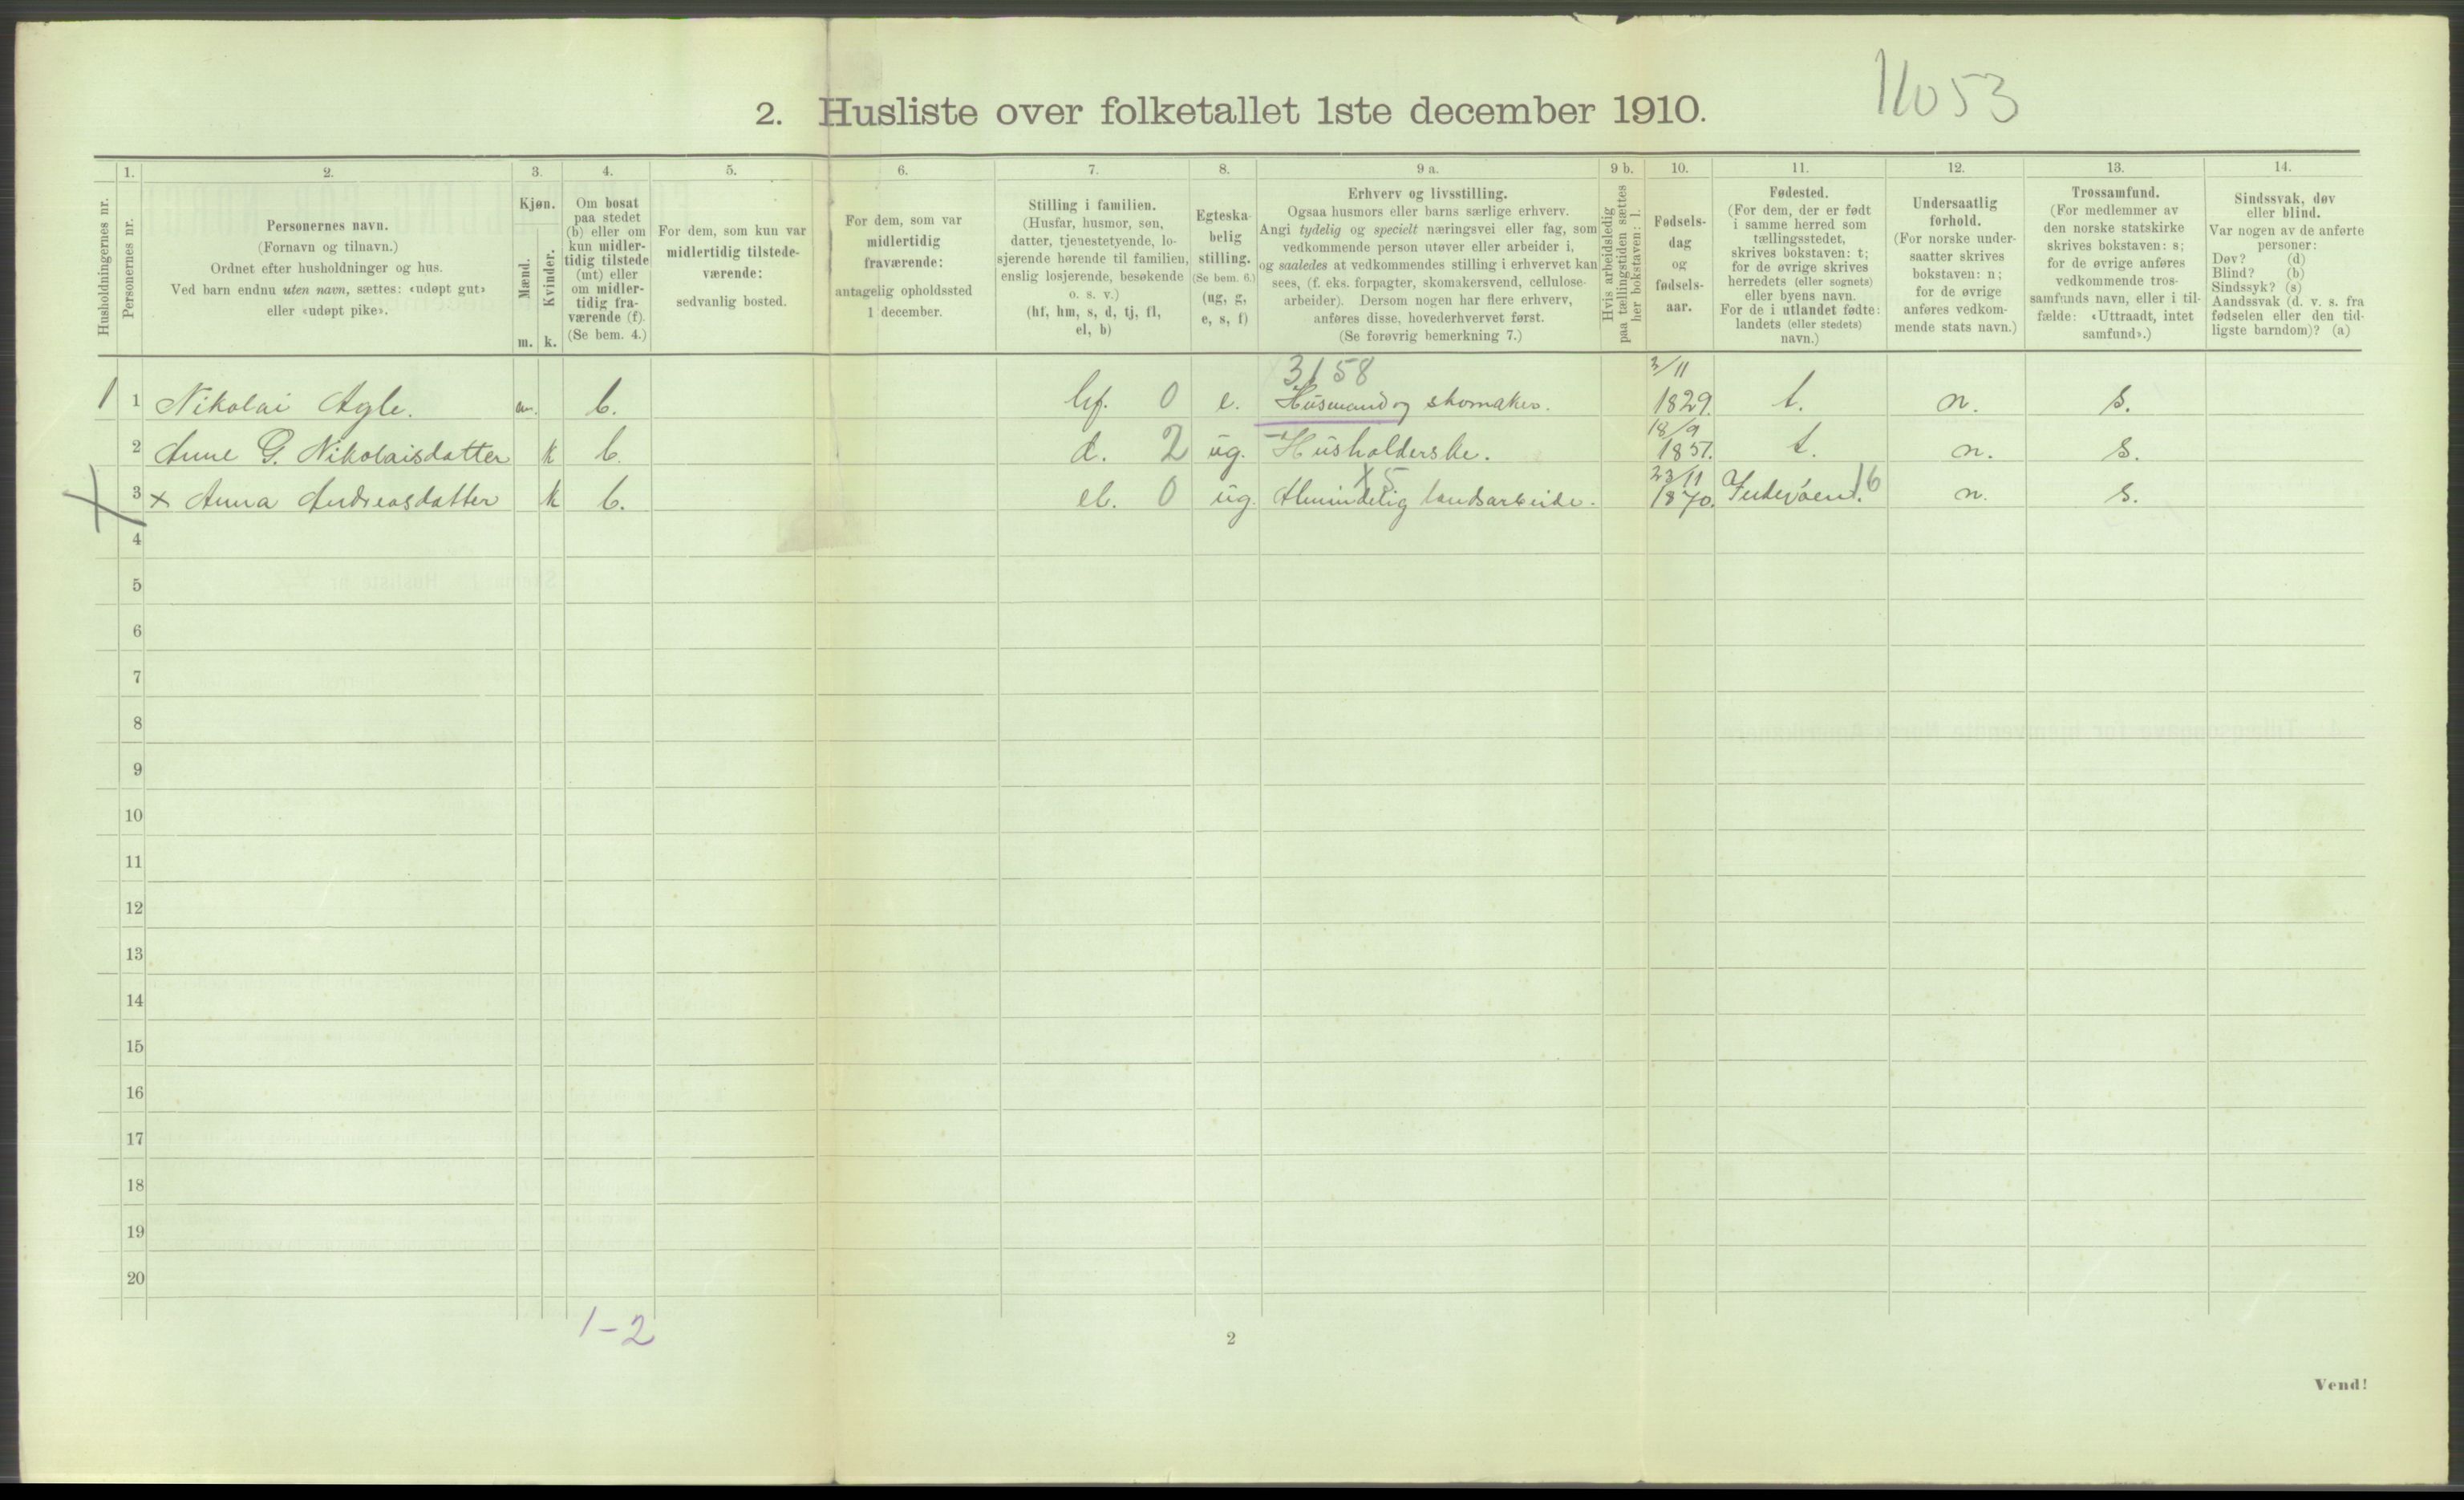 2. Husliste over folketallet 1ste december 1910.
11053
Husholdningernes nr.
1.
Personernes nr.
2.
Personernes navn.
(Fornavn og tilnavn.)
Ordnet efter husholdninger og hus.
Ved barn endnu uten navn, sættes: «udøpt gut»
eller «udøpt pike».
3.
Kjøn.
Mænd.
Kvinder.
m. k.
4.
Om bosat
paa stedet
(b) eller om
kun midler-
tidig tilstede
(mt) eller
om midler-
tidig fra-
værende (f).
(Se bem. 4.)
5.
For dem, som kun var
midlertidig tilstede-
værende:
sedvanlig bosted.
6.
For dem, som var
midlertidig
fraværende:
antagelig opholdssted
1 december.
7.
Stilling i familien.
(Husfar, husmor, søn,
datter, tjenestetyende, lo-
sjerende hørende til familien,
enslig losjerende, besøkende
o. s. v.)
(hf, hm, s, d, tj, fl,
el, b)
8.
Egteska-
belig
stilling.
(Se bem. 6.)
(ug, g,
e, s, f)
9 a.
Erhverv og livsstilling.
Ogsaa husmors eller barns særlige erhverv.
Angi tydelig og specielt næringsvei eller fag, som
vedkommende person utøver eller arbeider i,
og saaledes at vedkommendes stilling i erhvervet kan
sees, (f. eks. forpagter, skomakersvend, cellulose-
arbeider). Dersom nogen har flere erhverv,
anføres disse, hovederhvervet først.
(Se forøvrig bemerkning 7.)
9 b.
Hvis arbeidsledig
paa tællingstiden sættes
her bokstaven: l.
10.
Fødsels-
dag
og
fødsels-
aar.
11.
Fødested.
(For dem, der er født
i samme herred som
tællingsstedet,
skrives bokstaven: t;
for de øvrige skrives
herredets (eller sognets)
eller byens navn.
For de i utlandet fødte:
landets (eller stedets)
navn.)
12.
Undersaatlig
forhold.
(For norske under-
saatter skrives
bokstaven: n;
for de øvrige
anføres vedkom-
mende stats navn.)
13.
Trossamfund.
(For medlemmer av
den norske statskirke
skrives bokstaven: s;
for de øvrige anføres
vedkommende tros-
samfunds navn, eller i til-
fælde: «Uttraadt, intet
samfund».)
14.
Sindssvak, døv
eller blind.
Var nogen av de anførte
personer:
Døv? (d)
Blind? (b)
Sindssyk? (s)
Aandssvak (d. v. s. fra
fødselen eller den tid-
ligste barndom)? (a)
3158 3/11
1 1 Nikolai Agle. m. b. hf. 0 e. Husmand og skomaker. 1829. t. n. s.
18/9
2 Anne G. Nikolaisdatter k b. d. 2 ug. Husholderske. 1857. t. n. s.
X 5 23/11
3 x Anna Andreasdatter k b. el. 0 ug. Almindelig landsarbeide. 1870. Inderøen. 16 n. s.
4
5
6
7
8
9
10
11
12
13
14
15
16
17
18
19
20
1-2
2
Vend!